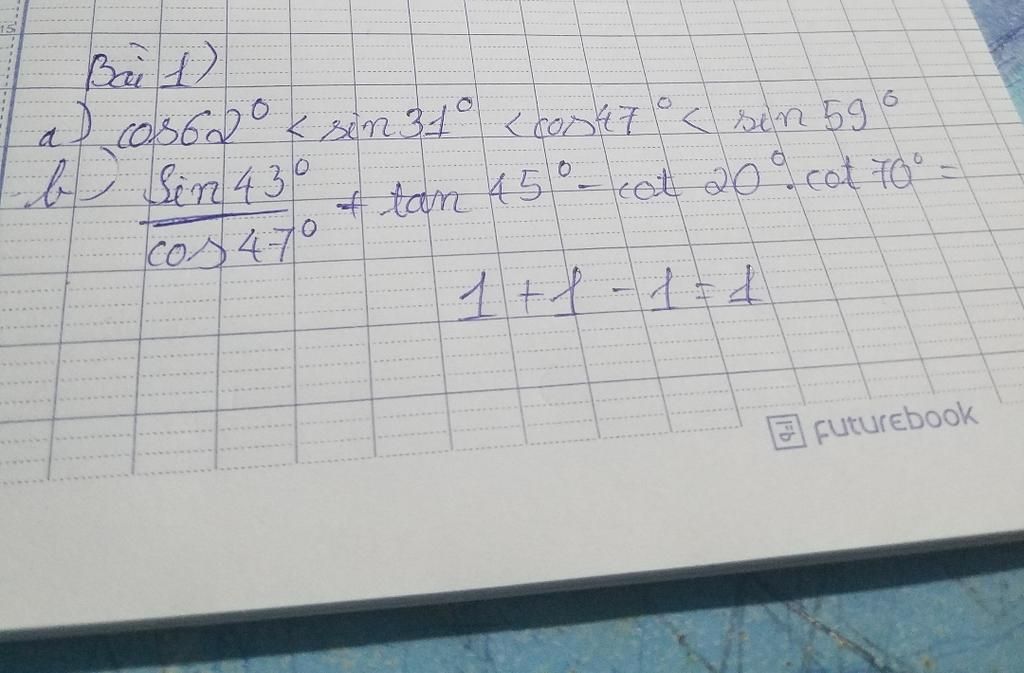 15
Bài 1)
a) cos62° < sin 31° < cos47° < sin 59°
b) sin 43° / cos 47° + tan 45° - cot 20°. cot 70° =
1 + 1 - 1 = 1
FUTUREBOOK